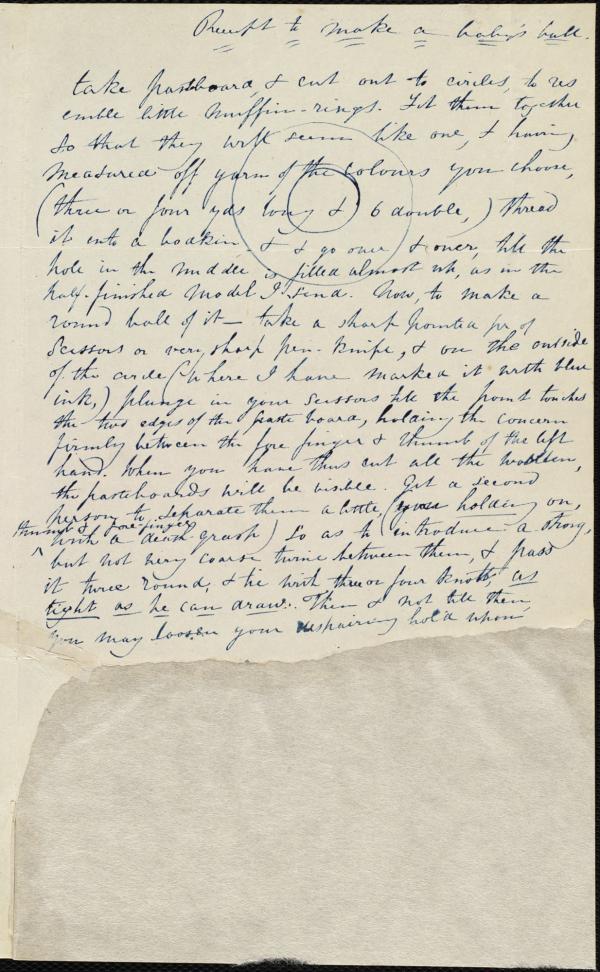 Receipt to make a baby's ball.
take pasteboard, & cut out to circles, to res
emble little muffin-rings. Fit them together
so that they will seem like one, & having
measured off yarn of the colours you choose,
(three or four yds long & 6 double,) thread
it into a bodkin & & go over & over, till the
hole in the middle is filled almost up, as in the
half-finished model I send. Now, to make a
round ball of it — take a sharp pointed pr of
scissors or very sharp pen-knife, & on the outside
of the circle (where I have marked it with blue
ink,) plunge in your scissors till the point touches
the two edges of the paste board, holding the concern
firmly between the fore finger & thumb of the left
hand. When you have thus cut all the woollen,
the pasteboards will be visible. Get a second
person to separate them a little, (you holding on,
thumb & forefinger
^ with a death grasp) so as to introduce a strong,
but not very coarse twine between them, & pass
it twice round, & tie with three or four knots, as
tight as he can draw. Then & not till then,
you may loosen your despairing hold upon